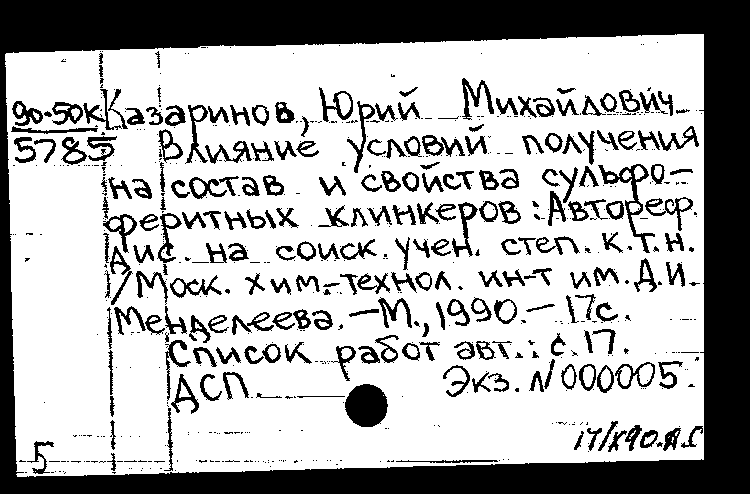 90-50к Казаринов, Юрий Михайлович
5785 Влияние условий получения
на состав и свойства сульфо-
феритных клинкеров : Автореф.
дис. на соиск. учен. степ. к.т.н.
/Моск. хим.-технол. ин-т им. Д.И.
Менделеева. — М., 1990. — 17с.
Список работ авт.: с.17.
ДСП. Экз. N 000005.
17/X90.А.С
5